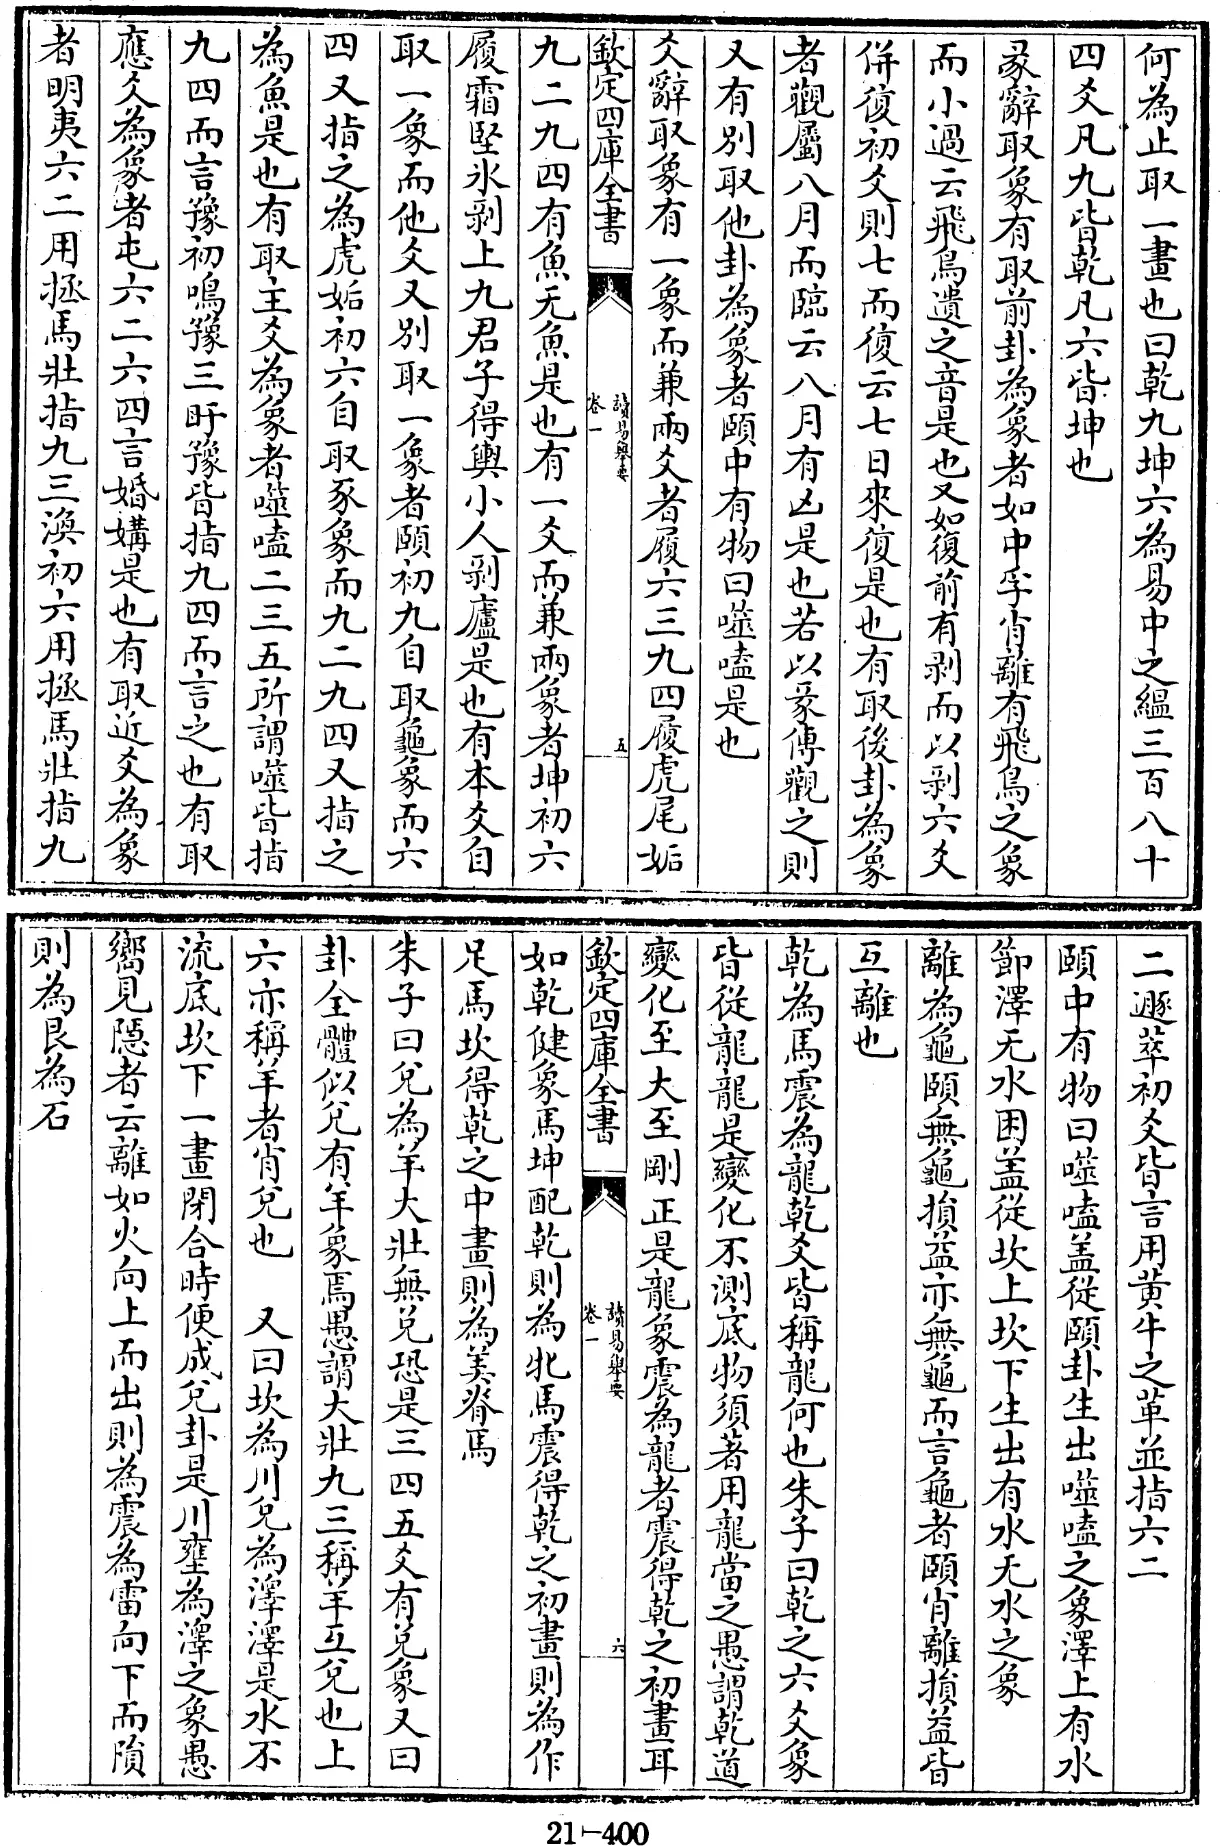 何為止取一畫也曰乾九坤六為易中之緼三百八十
四爻凡九皆乾凡六皆坤也
彖辭取象有取前卦為象者如中孚肖離有飛鳥之象
而小過云飛鳥遺之音是也又如復前有剥而以剥六爻
併復初爻則七而復云七日來復是也有取後卦為象
者觀屬八月而臨云八月有凶是也若以彖傳觀之則
又有别取他卦為象者頤中有物曰噬嗑是也
爻辭取象有一象而兼兩爻者履六三九四履虎尾姤
欽定四庫全書
讀易舉要
卷一
五
九二九四有魚无魚是也有一爻而兼兩象者坤初六
履霜堅氷剥上九君子得輿小人剥廬是也有本爻自
取一象而他爻又别取一象者頤初九自取龜象而六
四又指之為虎姤初六自取豕象而九二九四又指之
為魚是也有取主爻為象者噬嗑二三五所謂噬皆指
九四而言豫初鳴豫三盱豫皆指九四而言之也有取
應爻為象者屯六二六四言婚媾是也有取近爻為象
者明夷六二用拯馬壯指九三渙初六用拯馬壯指九
二遯萃初爻皆言用黄牛之革並指六二
頤中有物曰噬嗑盖從頤卦生出噬嗑之象澤上有水
節澤无水困盖從坎上坎下生出有水无水之象
離為龜頤無龜損益亦無龜而言龜者頤肖離損益皆
互離也
乾為馬震為龍乾爻皆稱龍何也朱子曰乾之六爻象
皆從龍龍是變化不測底物須著用龍當之愚謂乾道
變化至大至剛正是龍象震為龍者震得乾之初畫耳
欽定四庫全書
讀易舉要
卷一
六
如乾健象馬坤配乾則為牝馬震得乾之初畫則為作
足馬坎得乾之中畫則為美脊馬
朱子曰兌為羊大壯無兌恐是三四五爻有兌象又曰
卦全體似兌有羊象焉愚謂大壯九三稱羊互兌也上
六亦稱羊者肖兌也　又曰坎為川兌為澤澤是水不
流底坎下一畫閉合時便成兌卦是川壅為澤之象愚
嚮見隱者云離如火向上而出則為震為雷向下而隕
則為艮為石
21-400